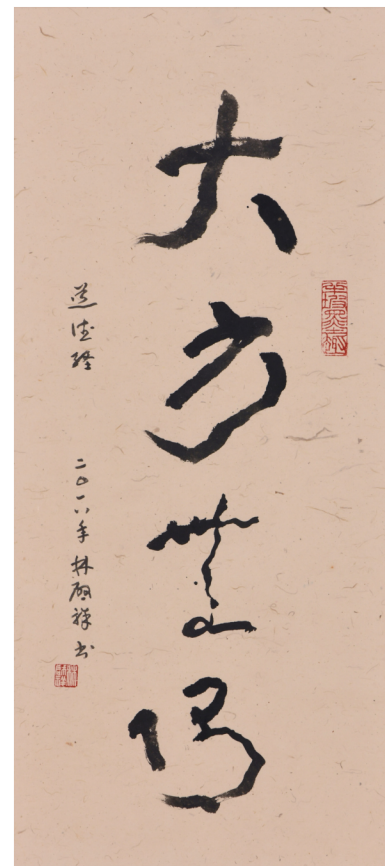 大方無隅
道德經
二〇一八年 林啟 書